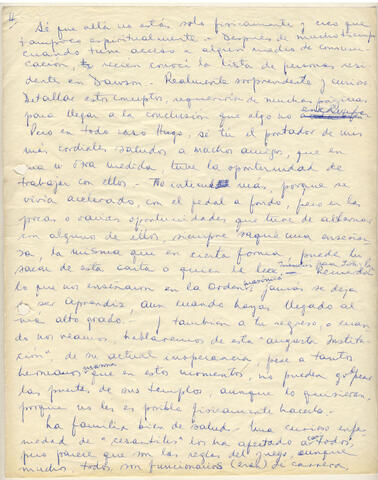 4
Sé que allá no estás solo físicamente y creo que
tampoco espiritualmente. - Después de mucho tiempo
cuando tuve acceso a algún medio de comuni-
cación, recién conocí la lista de personas resi
dente en Dawson. - Realmente sorprendente y curioso.
Detallar estos conceptos, requeriría de muchas páginas
para llegar a la conclusión que algo no
Pero en todo caso Hugo, sé tu el portador de mis
más cordiales saludos a muchos amigos, que en
una u otra medida tuve la oportunidad de
trabajar con ellos. - No intensa, porque se
vivía acelerado, con el pedal a fondo, pero en las
pocas o varias oportunidades que tuve de alternar
con alguno de ellos, siempre saqué una enseñan
za, la misma que en cierta forma, puede tu
sacar de esta carta o quien la lea. -
lo que nos enseñaron en la Orden masónica jamás se deja
de ser Aprendiz, aun cuando hayas llegado al
más alto grado. - También a tu regreso, o cuan
do nos veamos, hablaremos de esta "augusta Institu
ción", de su actual inoperancia, pese a tantos
hermanos que en estos momentos, no pueden golpear
las puertas de sus templos, aunque lo quisieran,
porque no les es posible físicamente hacerlo.
La familia bien de salud. Una curiosa enfer
medad de "cesantitis" los ha afectado a todos,
pero parece que son las reglas del juego, aunque
muchos, todos, son funcionarios (eran) de carrera,